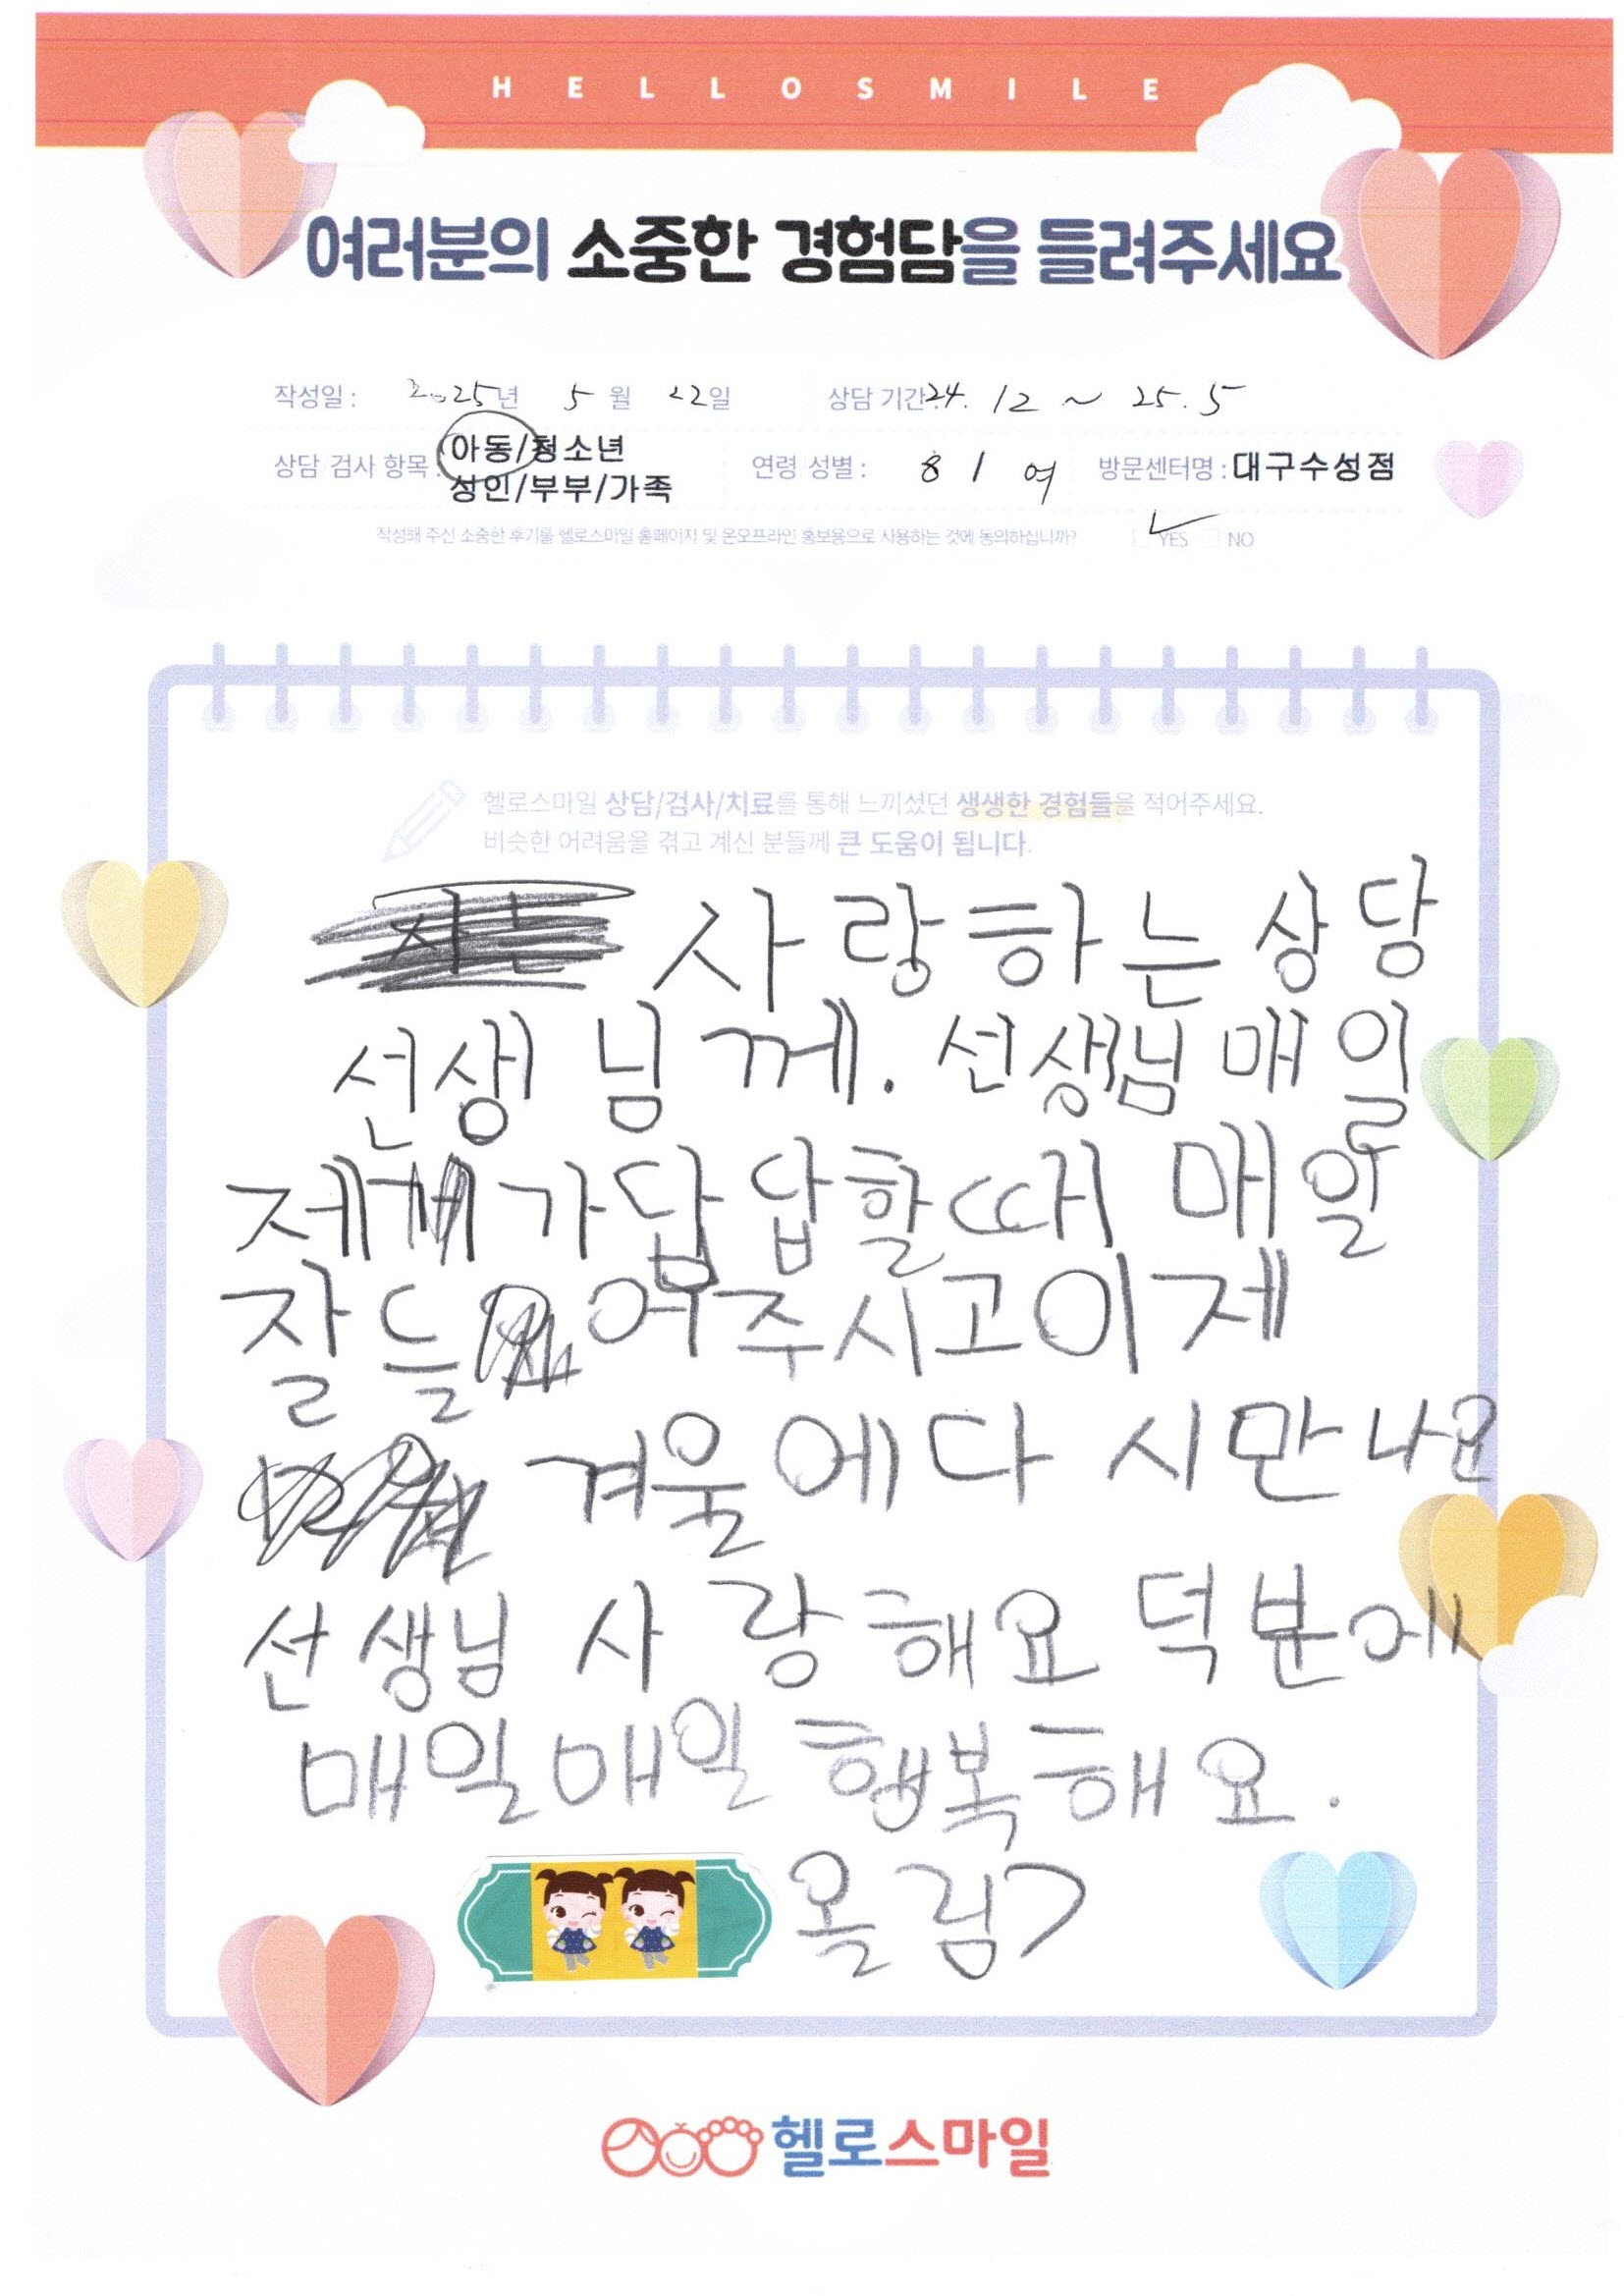 HELLOSMILE
여러분의 소중한 경험담을 들려주세요
작성일 : 2025년 5월 22일 상담 기간 : 24. 12 ~ 25. 5
상담/검사 항목 : 아동/청소년
성인/부부/가족
연령 성별 : 8 / 여 방문센터명 : 대구수성점
작성해 주신 소중한 후기를 헬로스마일 홈페이지 및 온오프라인 홍보용으로 사용하는 것에 동의하십니까? YES NO
헬로스마일 상담/검사/치료를 통해 느끼셨던 생생한 경험들을 적어주세요.
비슷한 어려움을 겪고 계신 분들께 큰 도움이 됩니다.
사랑하는 상담
선생님께. 선생님 매일
제가 답답할때 매일
잘 들어주시고 이제
겨울에 다시 만나요
선생님 사랑해요 덕분에
매일매일 행복해요.
올림
헬로스마일